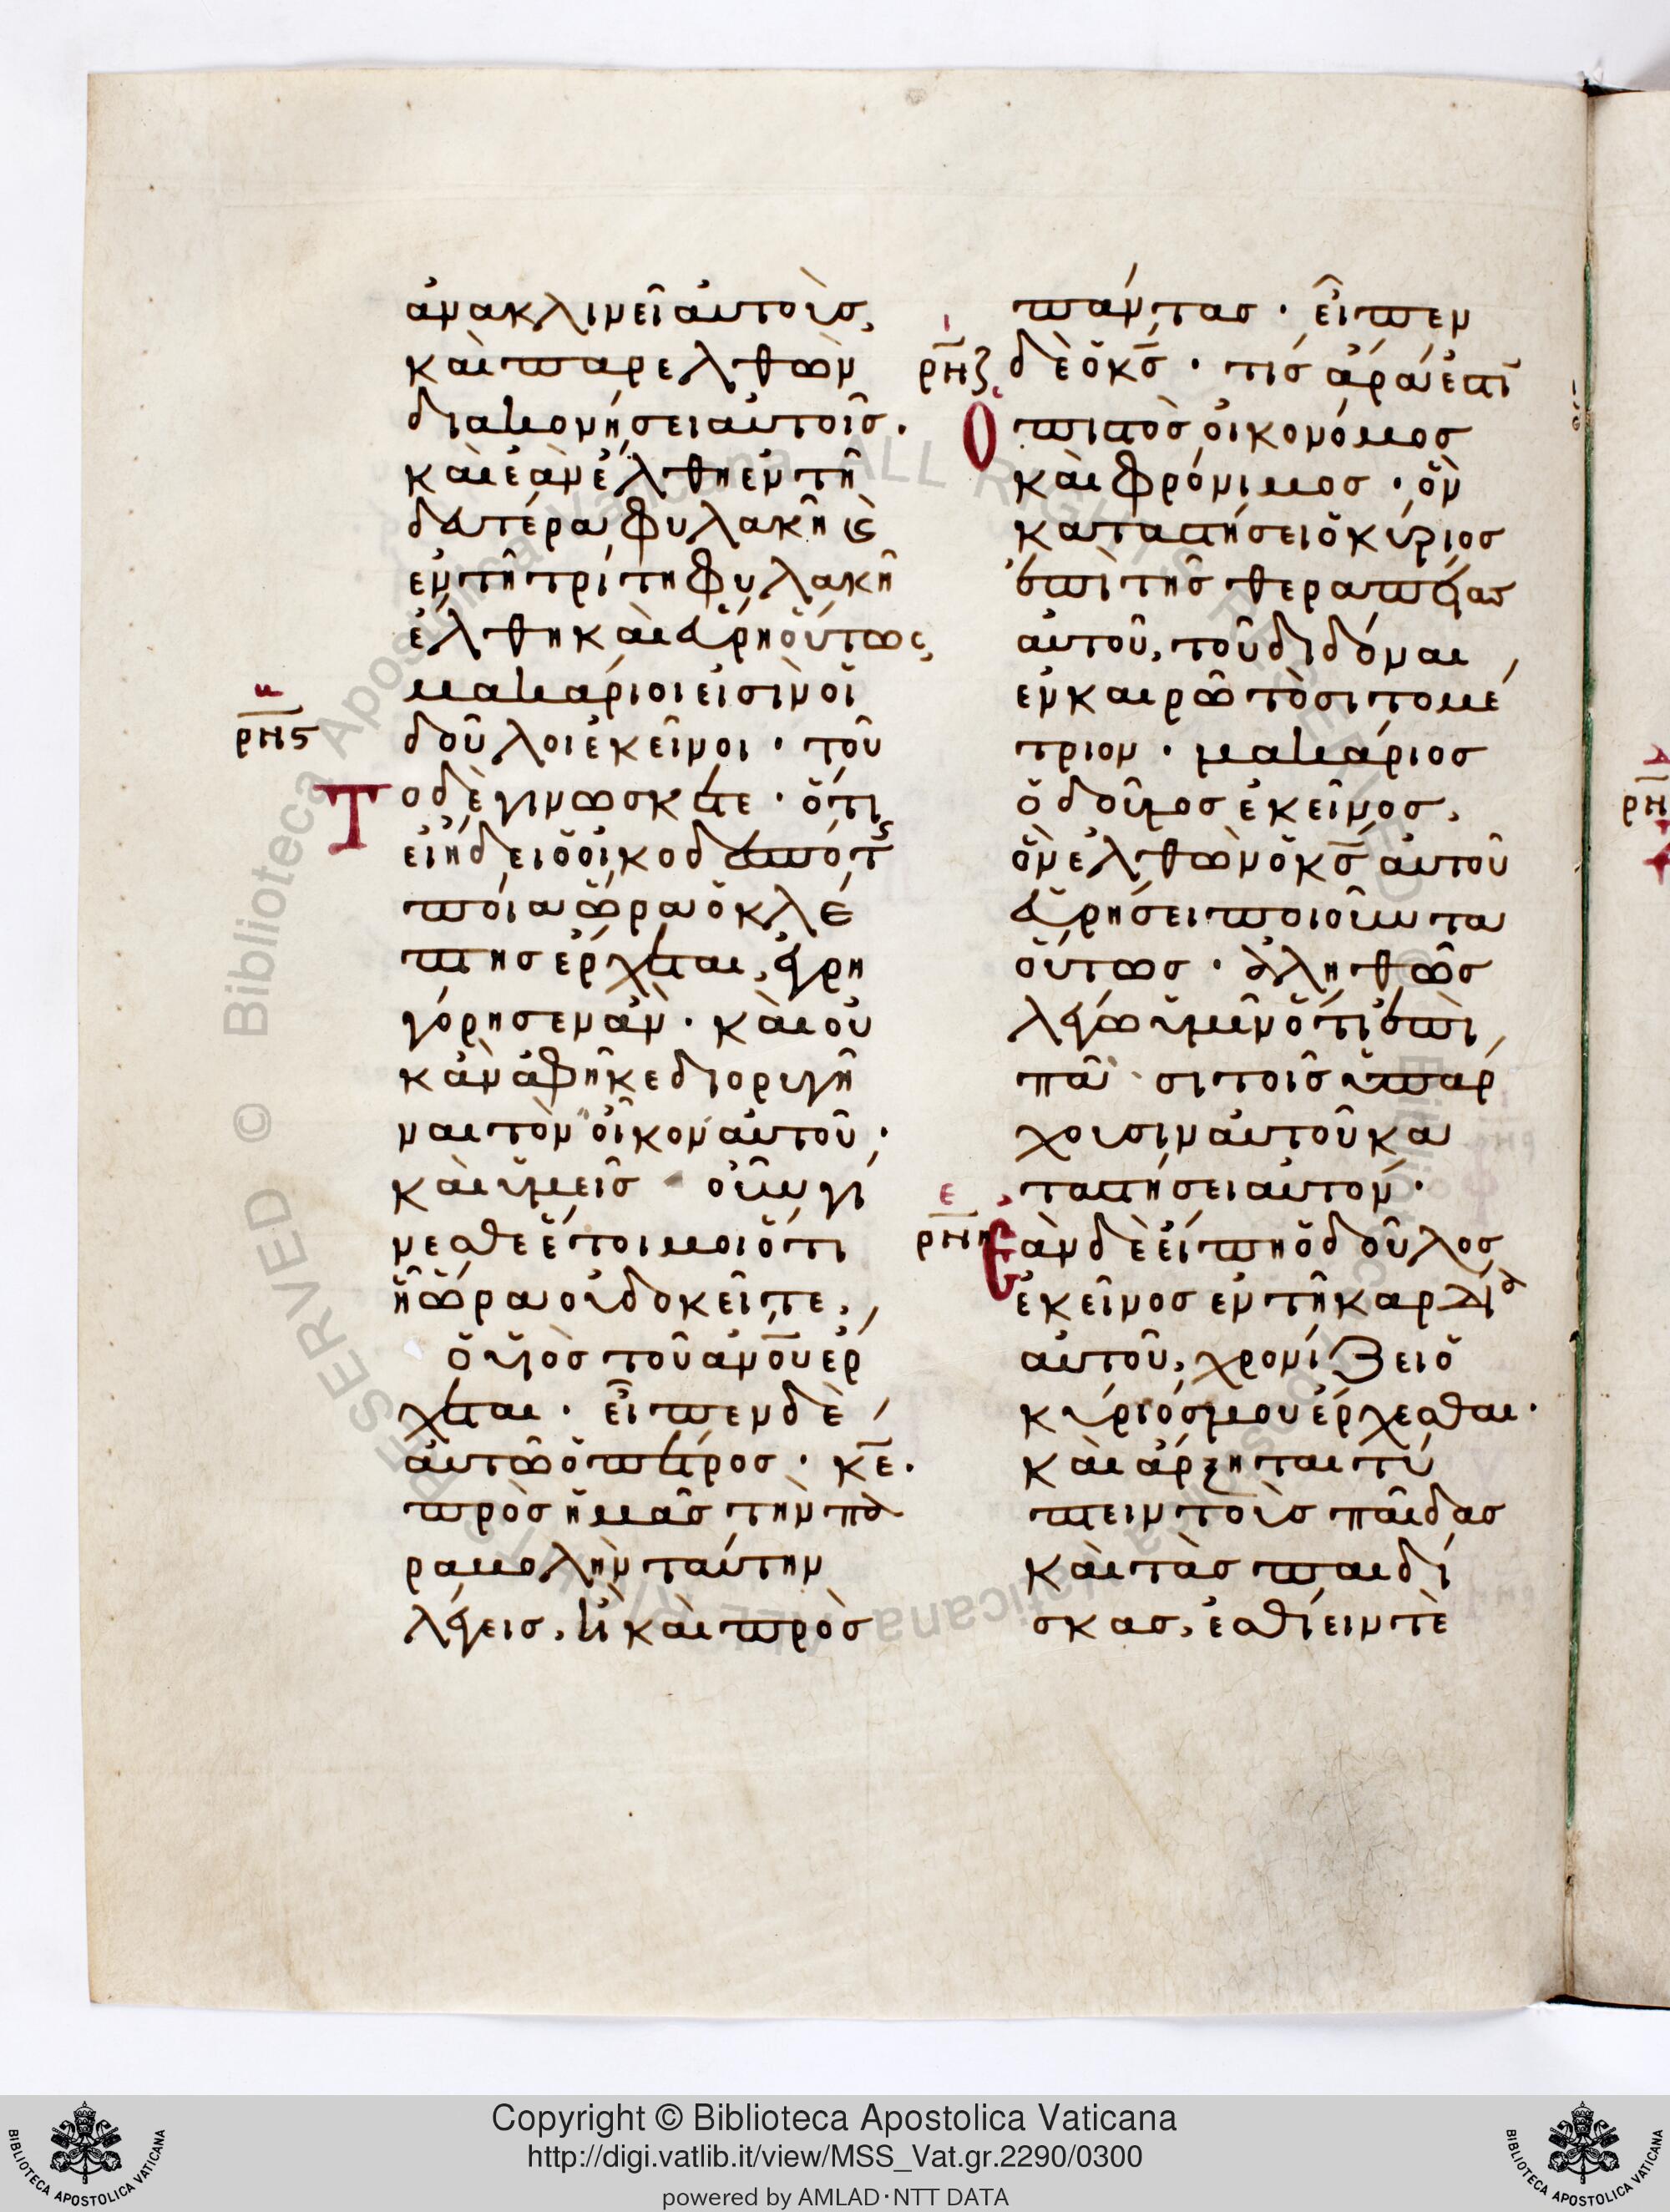 ἀνακλινεῖ αὐτοὺσ,
καὶ παρελθὼν
διακονήσει αὐτοῖσ.
καὶ ἐὰν ἔλθη ἐν τῆ
δευτέρα φυλακῆ ϗ
ἐν τῆ τρίτη φυλακῆ
ἔλθη καὶ εὕρη οὕτως,
μακάριοι εἰσὶν οἱ
ρμϛ
δοῦλοι ἐκεῖνοι · τοῦ
Τοδὲ γινώσκετε · ὅτι
εἰ ἤδει ὁ οἰκοδεσπότς
ποία ὥρα ὁ κλέ
πτησ ἔρχεται, ἐγρη
γόρησεν ἂν · καὶ οὐ
κ ἂν ἀφῆκε διορυγῆ
ναι τὸν οἶκον αὐτοῦ ·
καὶ ὑμεῖσ οὖν γί
νεσθε ἕτοιμοι ὅτι
ἧ ὥρα οὐ δοκεῖτε,
ὁ υἱὸσ τοῦ ἀνου ἔρ
χεται · εἶπεν δὲ
αὐτῶ ὁ πέτροσ · κε ·
πρὸσ ἡμᾶσ τὴν πα
ραβολὴν ταύτην
λέγεισ, ἢ καὶ πρὸσ
πάντασ · εἶπεν
ρμζ
δὲ ὁ κσ · τίσ ἄρα ἐστὶ
Ὁ πιστὸσ οἰκονόμοσ
καὶ φρόνιμοσ · ὃν
καταστήσει ὁ κύριοσ
ἐπὶ τῆσ θεραπείασ
αὐτοῦ, τοῦ διδόναι
ἐν καιρῶ τὸ σιτομέ
τριον · μακάριοσ
ὁ δοῦλοσ ἐκεῖνοσ,
ὃν ἐλθὼν ὁ κσ αὐτοῦ
εὑρήσει ποιοῦντα
οὕτωσ · ἀληθῶσ
λέγω ὑμῖν ὅτι ἐπὶ
πᾶσι τοῖσ ὑπάρ
χουσιν αὐτοῦ κα
ταστήσει αὐτον ·
ε
ρμη
Ἐὰν δὲ εἴπη ὁ δοῦλοσ
ἐκεῖνοσ ἐν τῆ καρδία
αὐτοῦ, χρονίζει ὁ
κύριόσ μου ἔρχεσθαι ·
καὶ ἄρξηται τύ
πτειν τοὺσ παῖδασ
καὶ τὰσ παιδί
σκασ, ἐσθίειν τὲ
Copyright © Biblioteca Apostolica Vaticana
http://digi.vatlib.it/view/MSS_Vat.gr.2290/0300
powered by AMLAD·NTT DATA
BIBLIOTECA APOSTOLICA VATICANA
BIBLIOTECA APOSTOLICA VATICANA